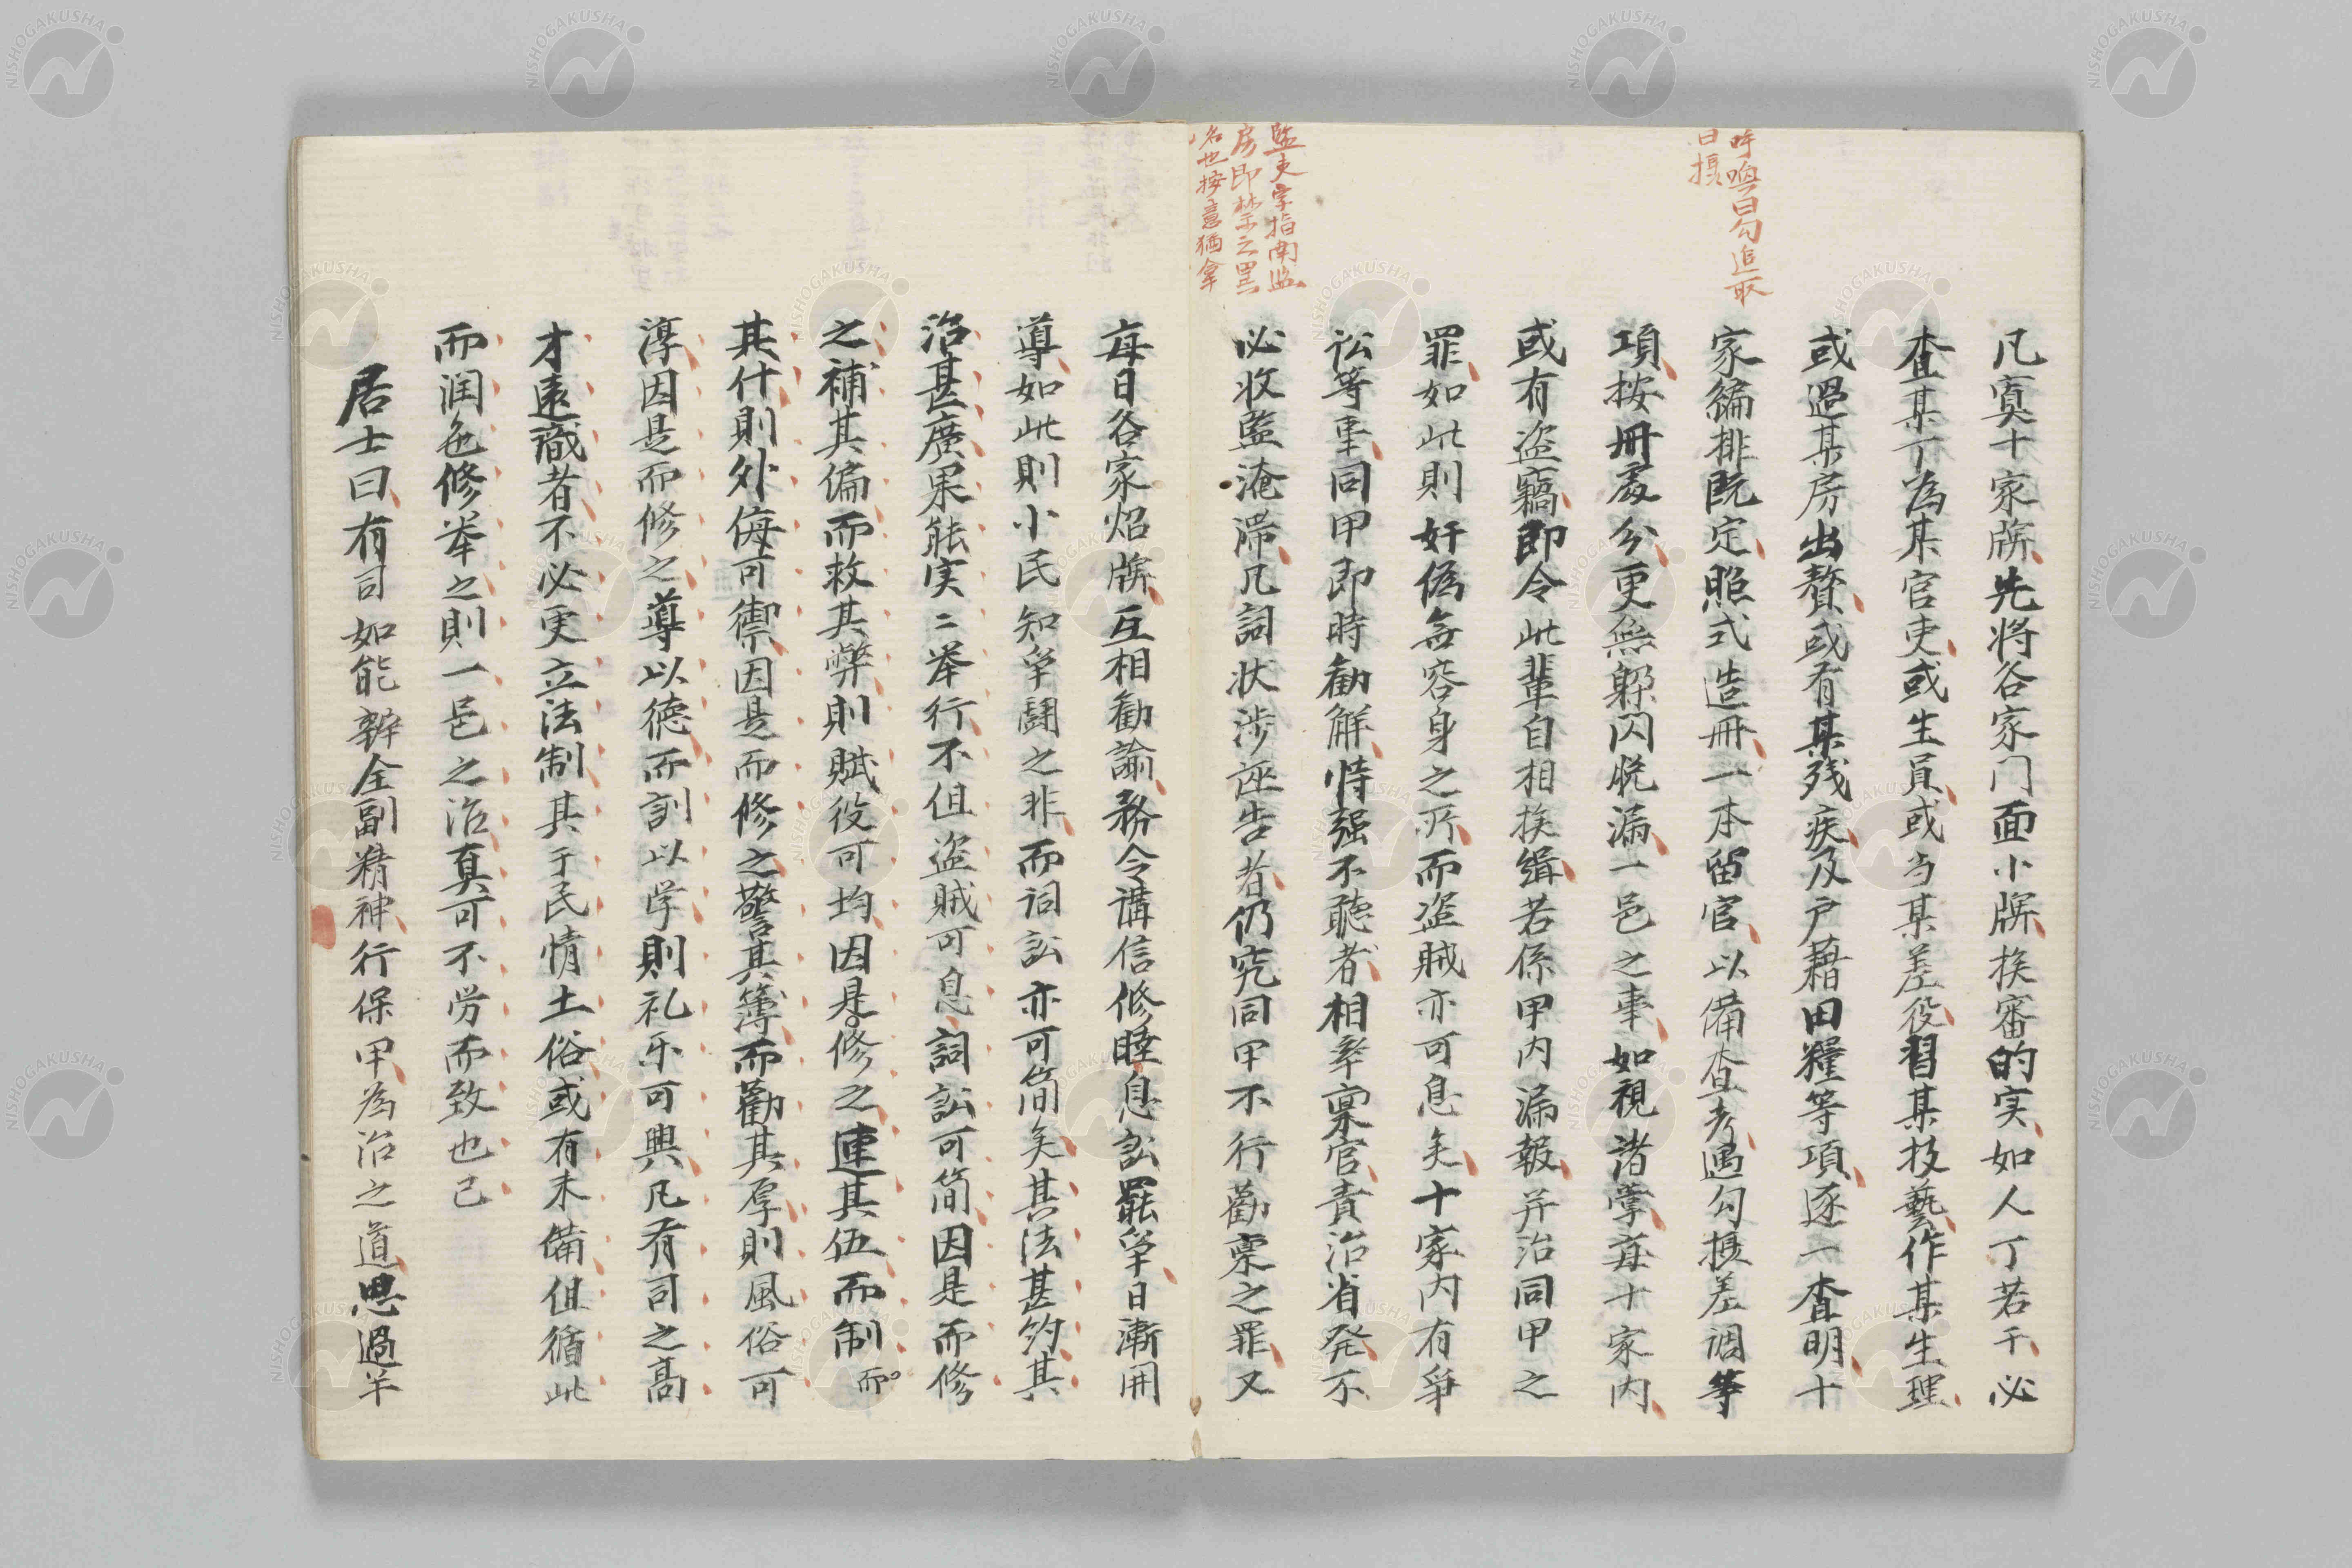 呼喚曰勾追取
曰摂
凡寘十家牌先将各家门面小牌挨審的実如人丁若干必
査某丁為某官吏或生員或当某差役習某技藝作某生理
或過某房出贅或有某残疾及户藉田糧等項逐一査明十
家編排既定照式造冊一本留官以備査考遇勾摂差調等
項按冊處分更無躱閃脱漏一邑之事如視諸掌毎十家内
或有盗竊即令此輩自相挨缉若係甲内漏報并治同甲之
罪如此則奸偽無容身之所而盗賊亦可息矣十家内有爭
訟等事同甲即時勧解恃强不聴者相率稟官責治省発不
必收監淹滞凡詞状涉誣告者仍究同甲不行勸稟之罪又
監吏字指南監
房即禁之罢
名也按意猶拿
毎日各家炤牌互相勧諭務令講信修睦息訟罷爭日漸開
導如此則小民知爭鬪之非而词訟亦可简矣其法甚约其
治甚廣果能実二举行不但盗賊可息詞訟可简因是而修
之補其偏而救其弊則賦役可均因是修之連其伍而制
而
其什則外侮可禦因是而修之警其簿而勸其厚則風俗可
淳因是而修之導以徳而訓以学則礼乐可興凡有司之高
才遠識者不必更立法制其于民情土俗或有未備但循此
而润色修举之則一邑之治真可不労而致也已
居士曰有司如能辨全副精神行保甲為治之道思過半